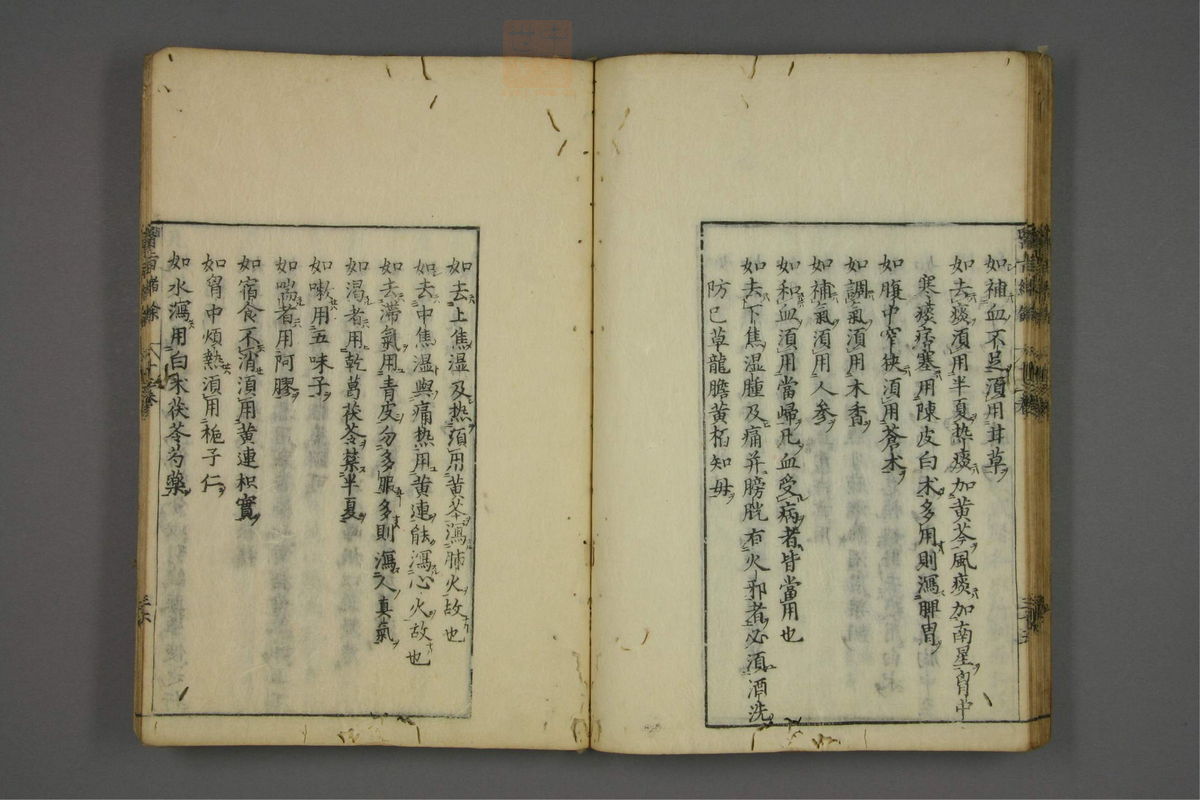 如補血不足須用甘草
如去痰須用半夏热痰加黄芩風痰加南星胷中
寒痰痞塞用陳皮白朮多用則瀉脾胃
如腹中窄狭須用蒼朮
如調氣須用木香
如補氣須用人参
如和血須用當歸凡血受病者皆當用也
如去下焦湿腫及痛并膀胱有火邪者必須酒洗
防已草龍膽黄栢知母
如去上焦湿及热須用黄芩瀉肺火故也
如去中焦湿與痛热用黄連能瀉心火故也
如去滞氣用青皮勿多服多則瀉人真氣
如渴者用乾葛茯苓禁半夏
如嗽用五味子
如喘者用阿膠
如宿食不消須用黄連枳實
如胷中煩熱須用梔子仁
如水瀉用白朮茯苓芍藥